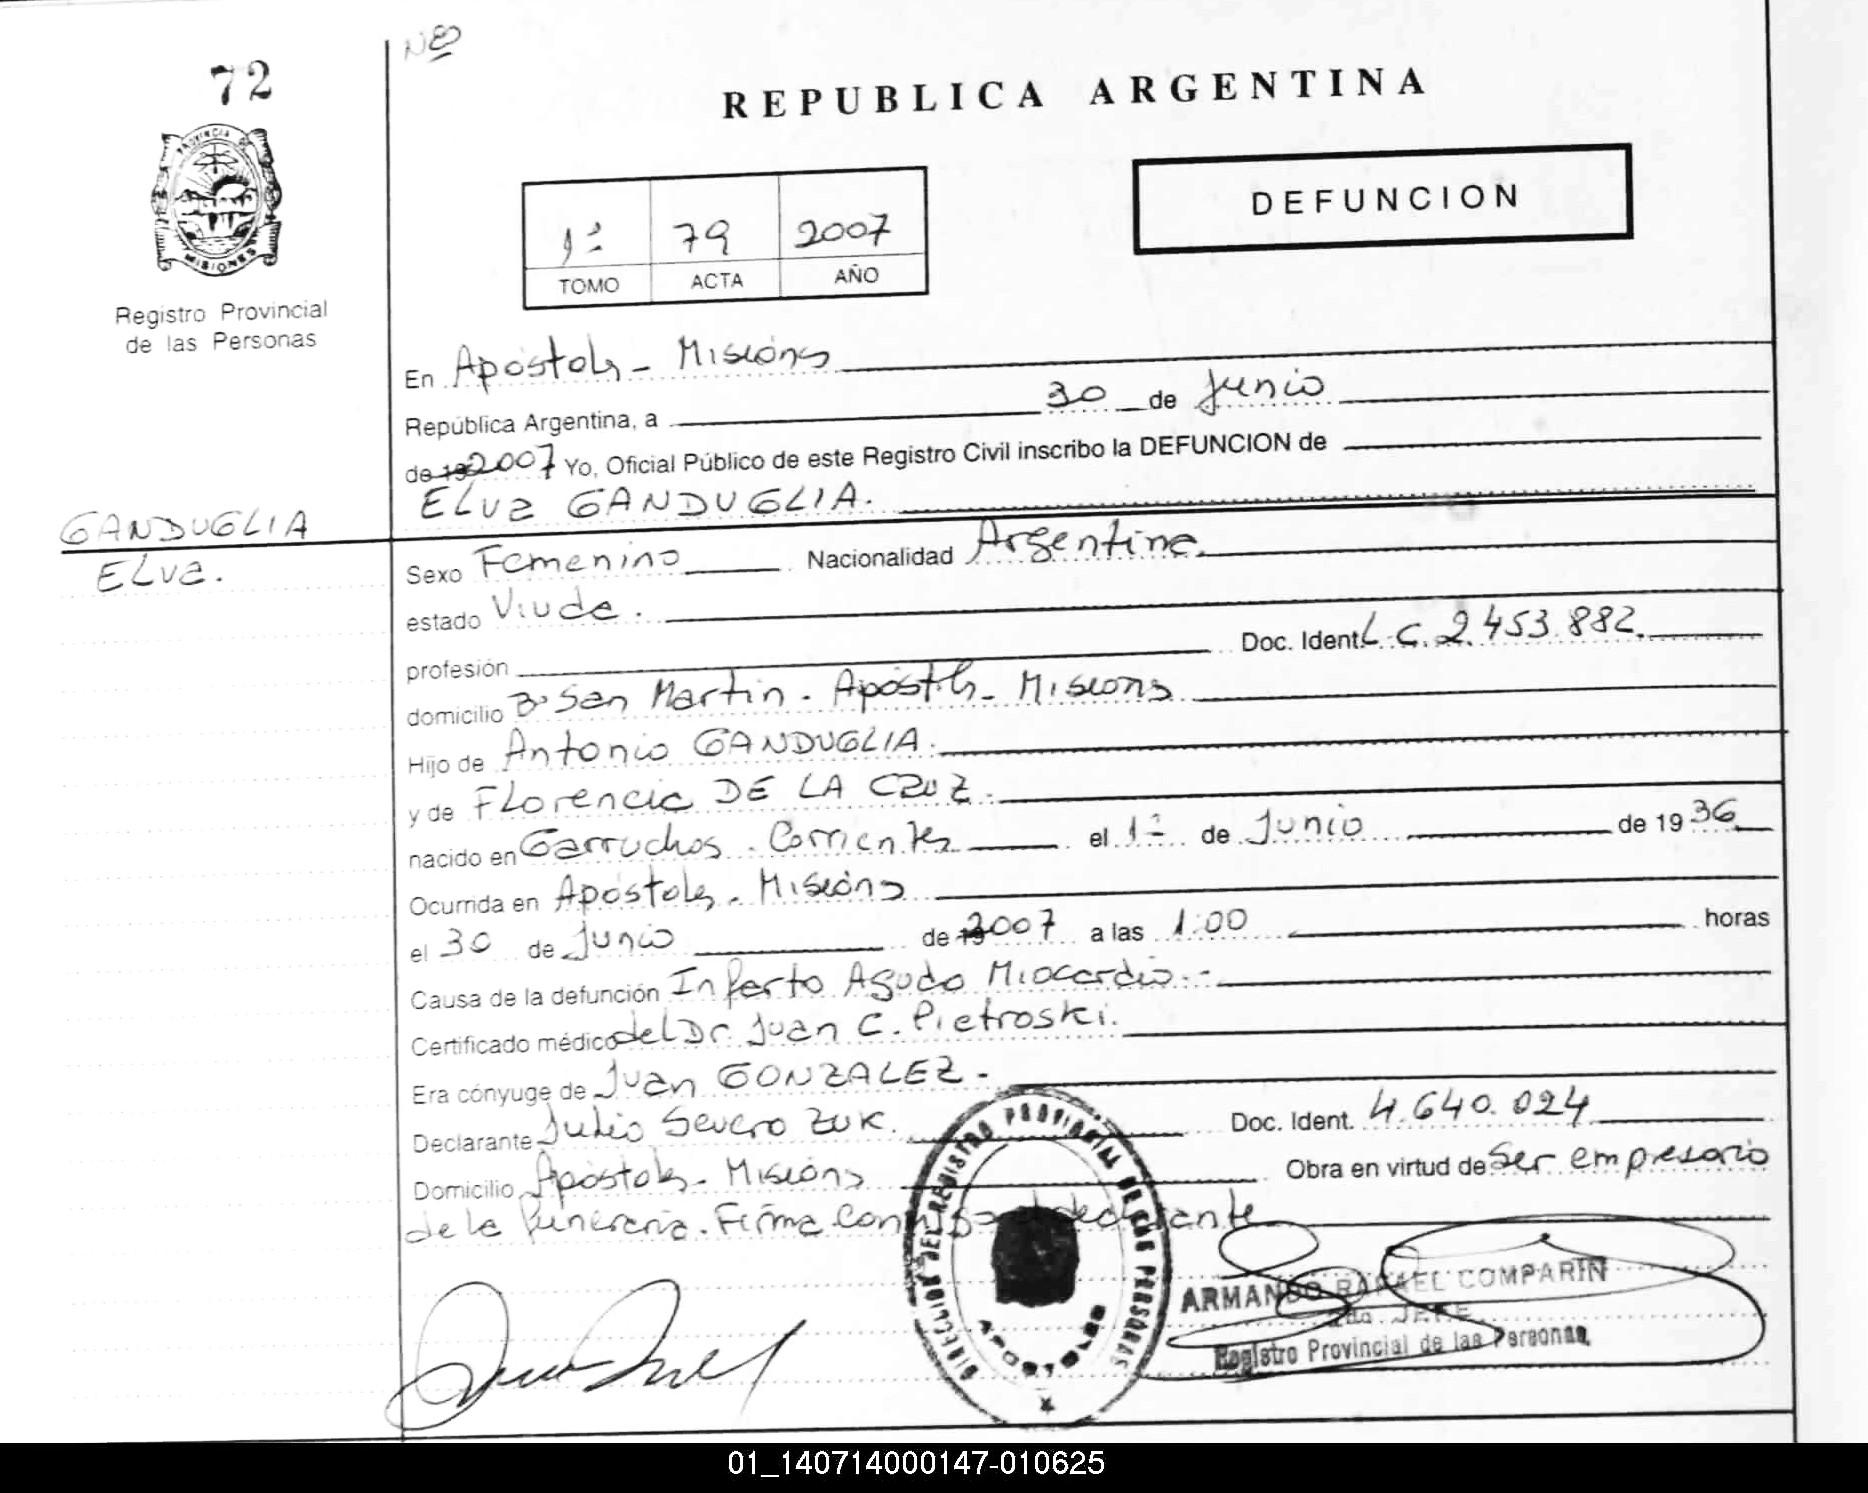 72
Nº
REPUBLICA ARGENTINA
PROVINCIA DE
MISIONES
Registro Provincial
de las Personas
DEFUNCION
1º 79 2007
TOMO ACTA AÑO
En Apóstoles - Misiones
República Argentina, a 30 de Junio
de 19 2007 Yo, Oficial Público de este Registro Civil inscribo la DEFUNCION de
ELVa GANDUGLIA.
GANDUGLIA
ELVa.
Sexo Femenino Nacionalidad Argentina.
estado Viuda.
profesión Doc. Ident. L.C. 2.453.882.
domicilio Bº San Martin - Apóstoles - Misiones
Hijo de Antonio GANDUGLIA.
y de FLorencia DE LA CRUZ.
nacido en Garruchos - Corrientes el 1º de Junio de 1936
Ocurrida en Apóstoles - Misiones
el 30 de Junio de 2007 a las 1:00 horas
Causa de la defunción Infarto Agudo Miocardio.-
Certificado médico del Dr. Juan C. Pietroski.
Era cónyuge de Juan GONZALEZ.-
Declarante Julio Severo Zuk. Doc. Ident. 4.640.024
Domicilio Apóstoles - Misiones Obra en virtud de Ser empresario
de la funeraria. Firma conmigo el declarante
DIRECCION DEL REGISTRO PROVINCIAL DE LAS PERSONAS
APOSTOLES
ARMANDO RAFAEL COMPARIN
2do. JEFE
Registro Provincial de las Personas
01_140714000147-010625